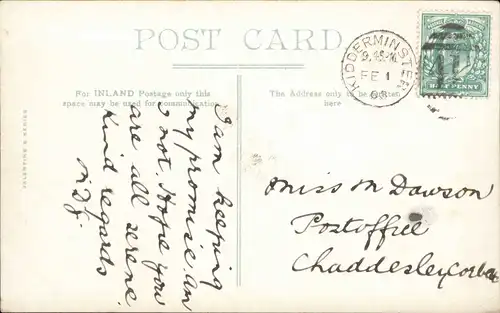 POST CARD
KIDDERMINSTER
FE 1
HALFPENNY
For INLAND Postage only this
space may be used for communication
The Address only to be written
here
VALENTINE'S SERIES
I am keeping
my promise, am
I not. Hope you
are all serene.
Kind regards
Miss M Dawson
Postoffice
Chaddesley Corbett